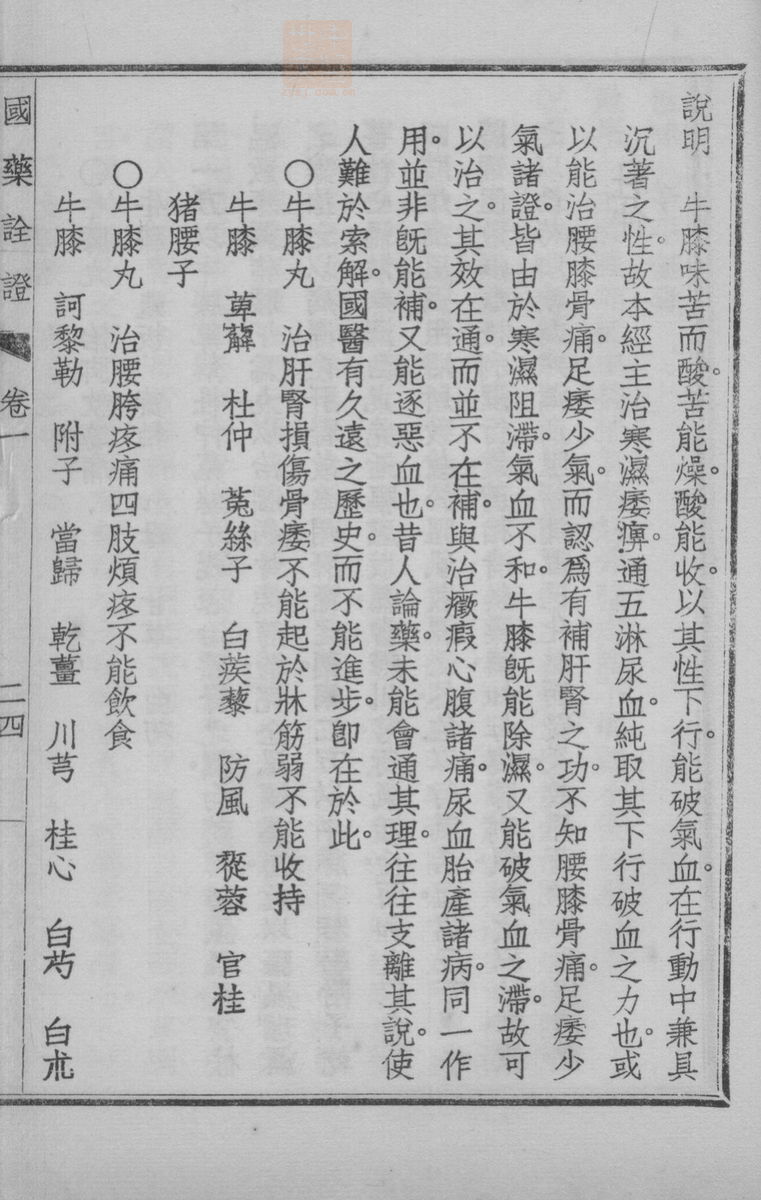 說明　牛膝味苦而酸。苦能燥。酸能收。以其性下行。能破氣血。在行動中兼具
沉著之性。故本經主治寒濕痿痹。通五淋尿血。純取其下行破血之力也。或
以能治腰膝骨痛。足痿少氣。而認爲有補肝腎之功。不知腰膝骨痛。足痿少
氣諸證。皆由於寒濕阻滯。氣血不和。牛膝旣能除濕。又能破氣血之滯。故可
以治之。其效在通。而並不在補。與治癥瘕心腹諸痛。尿血胎產諸病。同一作
用。並非旣能補。又能逐惡血也。昔人論藥。未能會通其理。往往支離其說。使
人難於索解。國醫有久遠之歷史。而不能進步。卽在於此。
○牛膝丸　治肝腎損傷骨痿不能起於牀筋弱不能收持
牛膝　萆薢　杜仲　菟絲子　白蒺藜　防風　蓯蓉　官桂
猪腰子
○牛膝丸　治腰胯疼痛四肢煩疼不能飲食
牛膝　訶黎勒　附子　當歸　乾薑　川芎　桂心　白芍　白朮
國藥詮證　卷一　二四